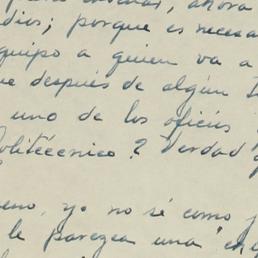 ahora
dios; porque es necesa
equipo a quien va a
ue después de algún
uno de los oficios
Politécnico? Verdad
eno, yo no sé como
le parezca una